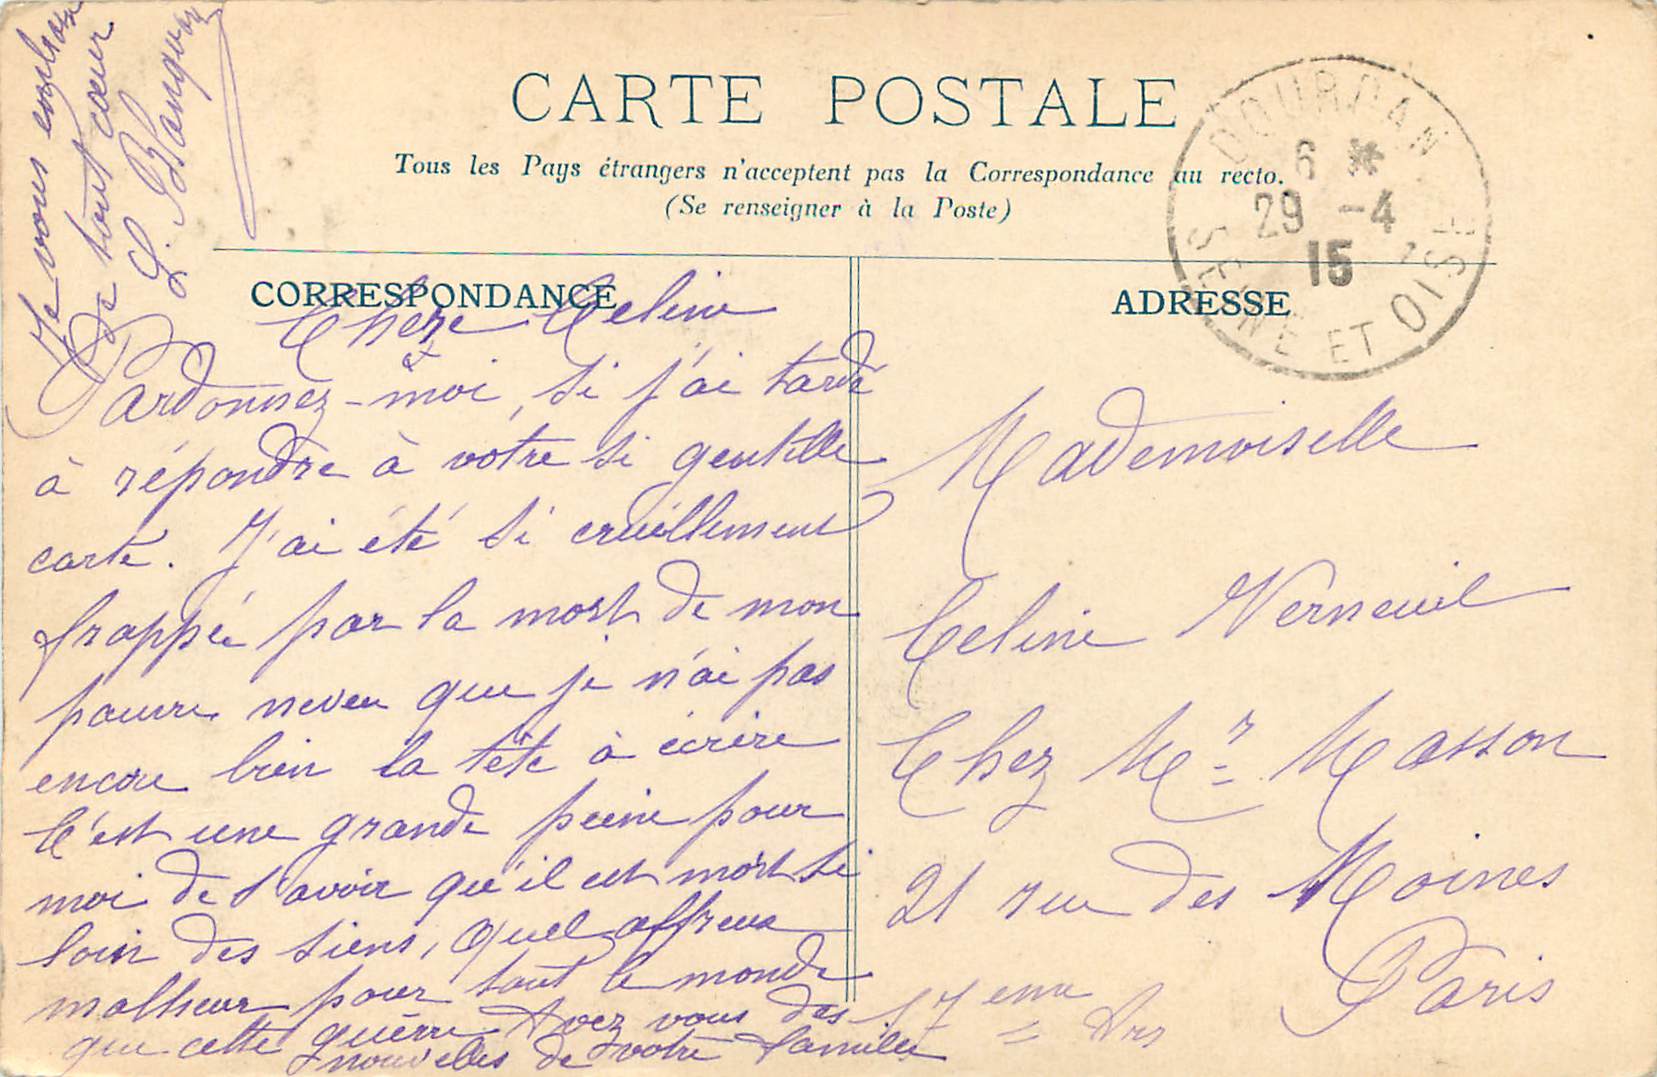 CARTE POSTALE
Tous les Pays étrangers n'acceptent pas la Correspondance au recto.
(Se renseigner à la Poste)
DOURDAN
6 *
29 -4
15
SEINE ET OISE
CORRESPONDANCE
ADRESSE
Chere Celine
Pardonnez-moi, si j'ai tardé
à répondre à votre si gentille
carte. J'ai été si cruellement
frappée par la mort de mon
pauvre neveu que je n'ai pas
encore bien la tête à écrire
C'est une grande peine pour
moi de savoir qu'il est mort si
loin des siens, quel affreux
malheur pour tout le monde
que cette guerre Avez vous des
nouvelles de votre famille
Je vous embrasse
de tout cœur
L. Blanquart
Mademoiselle
Celine Verneuil
Chez Mr Masson
21 rue des Moines
Paris
17eme Arr